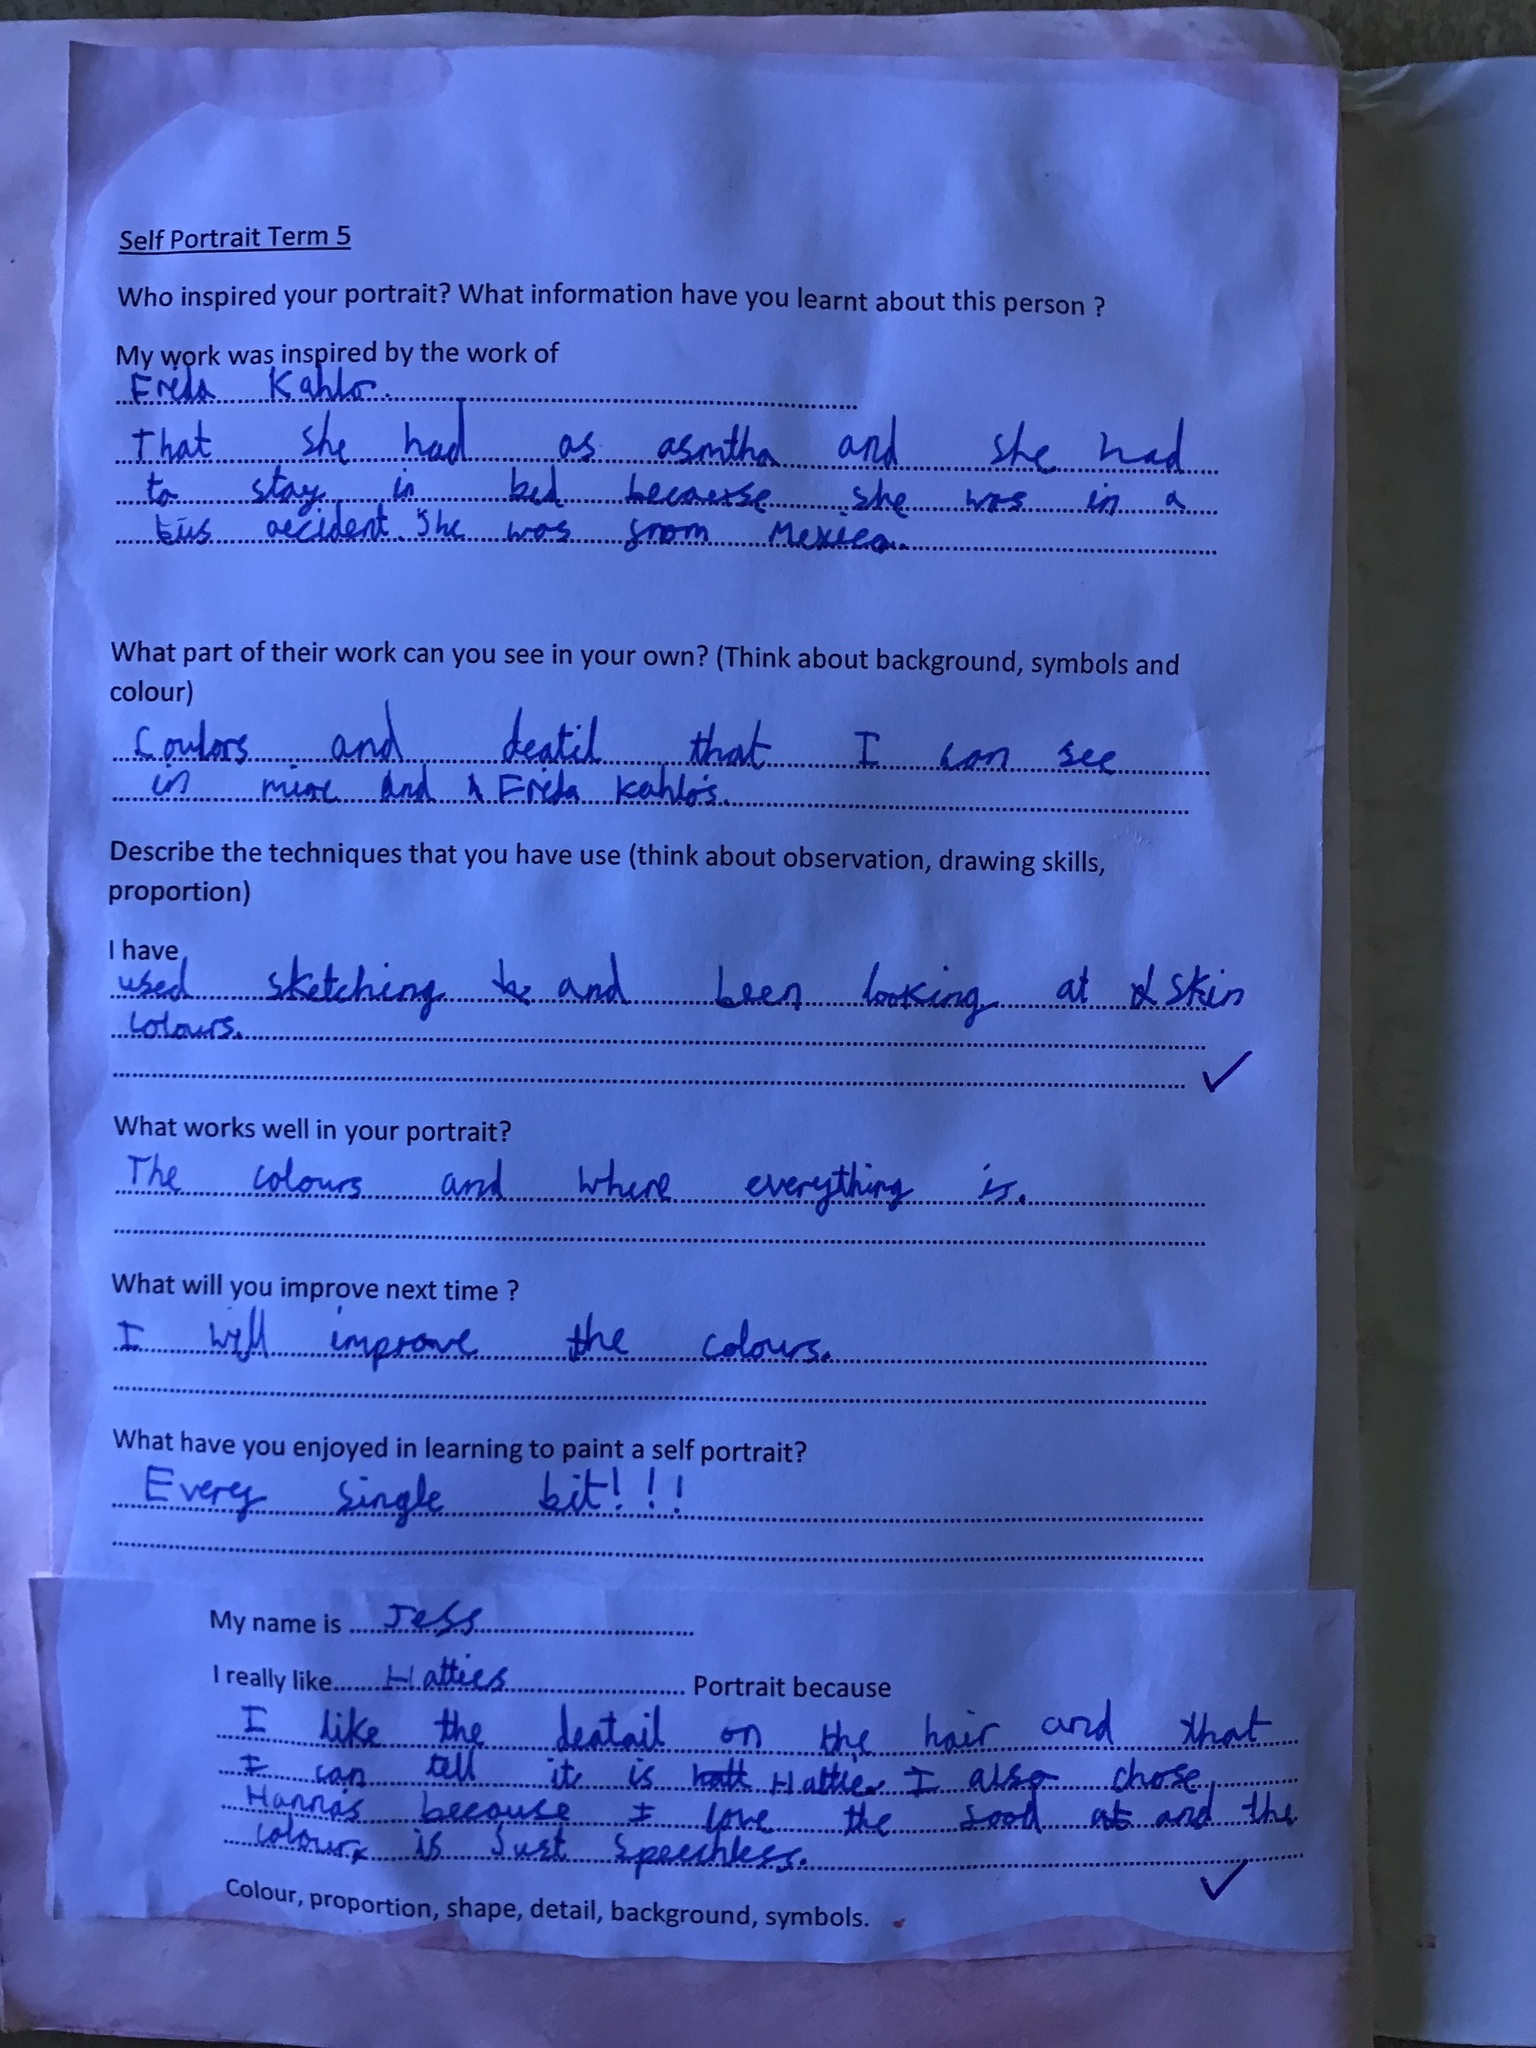 Self Portrait Term 5
Who inspired your portrait? What information have you learnt about this person ?
My work was inspired by the work of
Frida Kahlo.
That she had as asmtha and she had
to stay in bed becaerse she was in a
bus accident. She was from Mexico.
What part of their work can you see in your own? (Think about background, symbols and
colour)
Coulors and deatil that I can see
in mine and Frida Kahlo's.
Describe the techniques that you have use (think about observation, drawing skills,
proportion)
I have
used sketching and been looking at skin
colours.
What works well in your portrait?
The colours and where everything is.
What will you improve next time ?
I will improve the colours.
What have you enjoyed in learning to paint a self portrait?
Every single bit!!!
My name is Jess
I really like Hatties Portrait because
I like the deatail on the hair and that
I can tell it is Hattie. I also chose
Hanna's because I love the food and the
colour is Just speechless.
Colour, proportion, shape, detail, background, symbols.